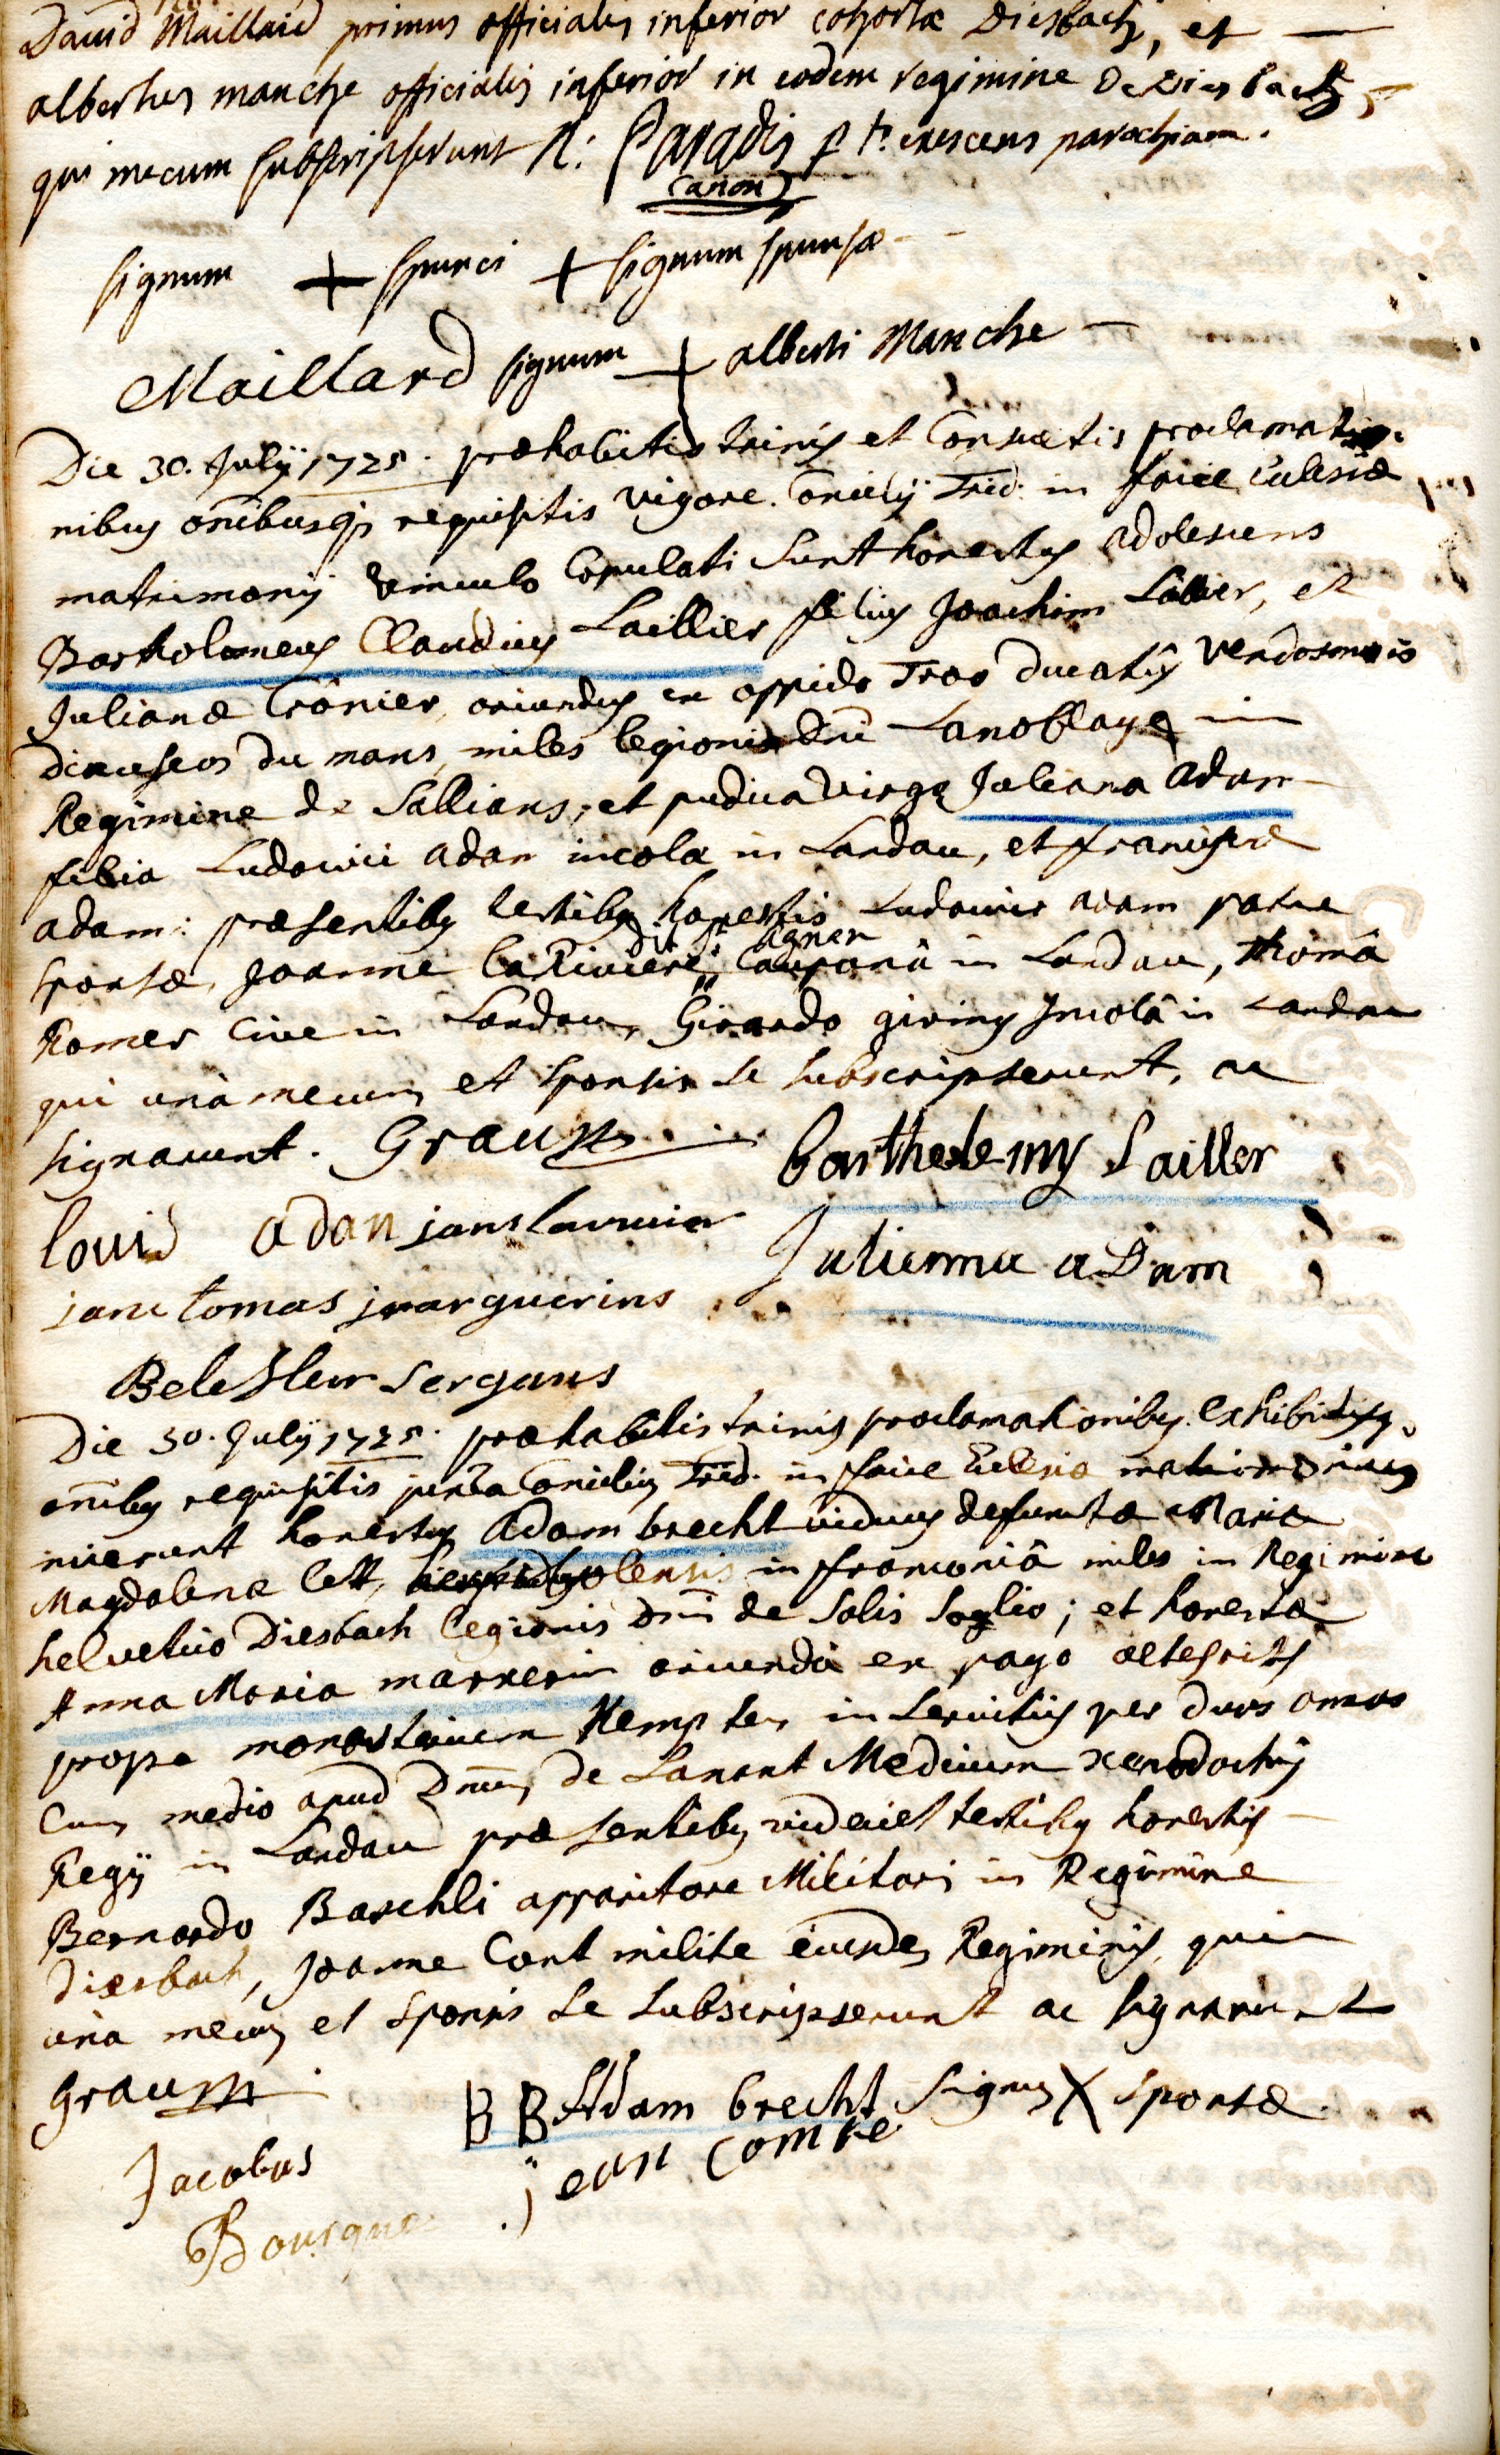 David Maillard primus officialis inferior cohortæ Diesbach, et
albertus manche officialis inferior in eodem regimine de Diesbach,
qui mecum subscripserunt N: Paradis parochiam.
Canon
signum + sponsi + signum sponsæ
Maillard signum + alberti Manche
Die 30. Julÿ 1725. præhabitis trinis et Consuetis proclamatio-
nibus onībusq; requisitis vigore Concilÿ Trid. in facie Ecclesiæ
matrimonÿ vinculo Copulati sunt honestus adolescens
Bartholomeus Claudius Laillier filius Joachim Laillier, et
Julianæ Crônier, oriundus ex oppido Troo ducatûs Vendosmensis
diæceseos du mans, miles legionis Dni Lanoblaye in
Regimine de Sallians, et pudica virgo Juliana Adam
filia Ludovici adam incola in Landau, et franciscæ
adam: præsentibus testibus honestis Ludovico adam patre
sponsæ, Joanne Lariviere dit St. agnan Caupona in Landau, Thomâ
Romer Cive in Landau, Girardo giring Incolâ in Landau
qui unà mecum et sponsis se subscripserunt, ac
signarunt. Grauss
barthelemy Lailler
louis adan
Julienna adam
jan tomas
Bele Fleur sergans
Die 30. Julÿ 1725. præhabitis trinis proclamationibus. Exhibitisq,
onībus requisitis juxta Concilium Trid. in facie Ecclesiæ matrimonium
inierunt honestus Adam brecht viduus defunctæ Mariæ
Magdalenæ lett, in franconiâ miles in Regimine
helvetico Diesbach legionis Dni de Salis Soglio; et honesta
Anna Maria marxerin oriunda ex pago
prope monasterium Kempten in servitiis per duos annos
Cum medio apud Dnum de Lanant Medicum xenodochÿ
Regÿ in Landau præsentibus videlicet testibus honestis
Bernardo Barchli apparitore Militari in Regimine
Diesbach, Joanne Cont milite eiusdem Regiminis, qui
unà mecum et sponsis se subscripserunt ac signarunt
Grauss
BB Adam brecht signum X sponsæ
jean Comte
Jacobus
Bourque